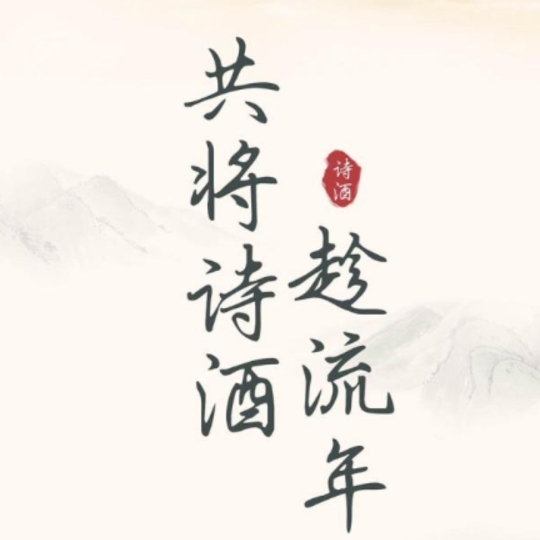 共将诗酒
趁流年
诗酒